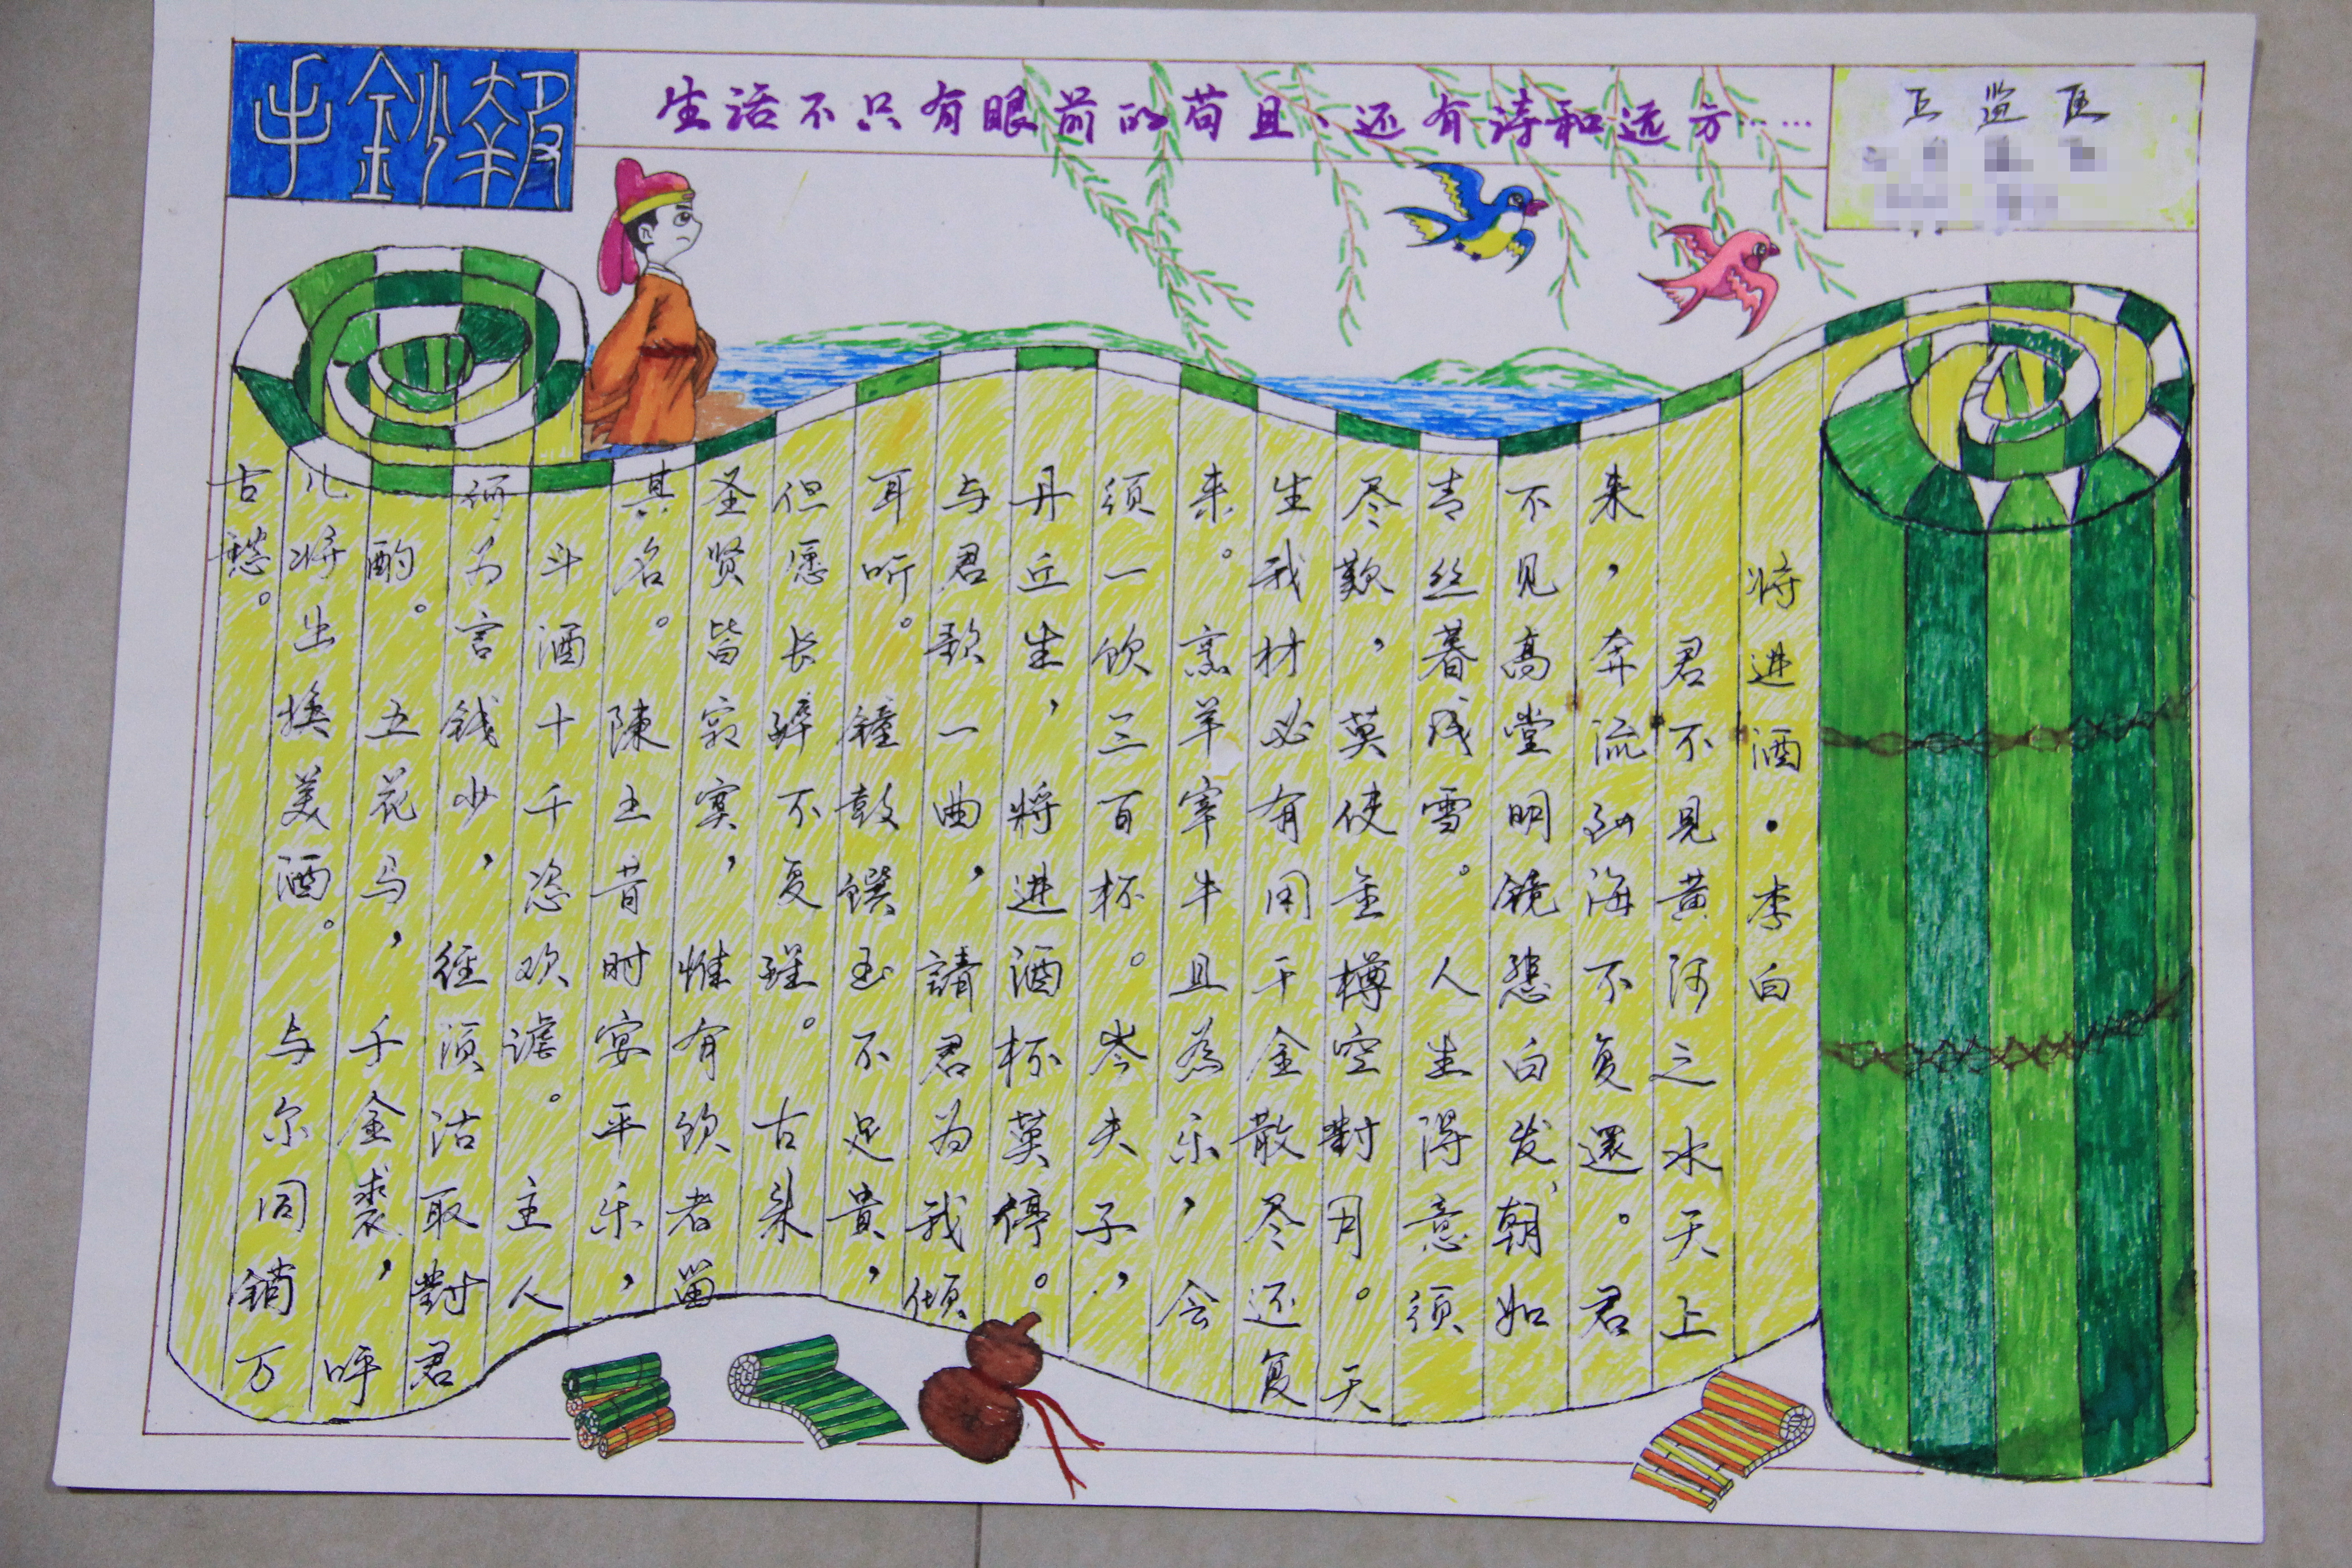 手鈔報
生活不只有眼前的苟且、还有诗和远方……
五监区
将进酒·李白
君不见黄河之水天上
来，奔流到海不复還。君
不见高堂明镜悲白发，朝如
青丝暮成雪。人生得意须
尽歡，莫使金樽空對月。天
生我材必有用千金散尽还复
来。烹羊宰牛且為乐，会
须一饮三百杯。岑夫子，
丹丘生，将进酒杯莫停。
与君歌一曲，請君为我倾
耳听。鐘鼓馔玉不足貴，
但愿长醉不复醒。古来
圣贤皆寂寞，惟有饮者留
其名。陳王昔时宴平乐，
斗酒十千恣欢谑。主人
何为言钱少，径须沽取對君
酌。五花马，千金裘，呼
儿将出换美酒。与尔同銷万
古愁。